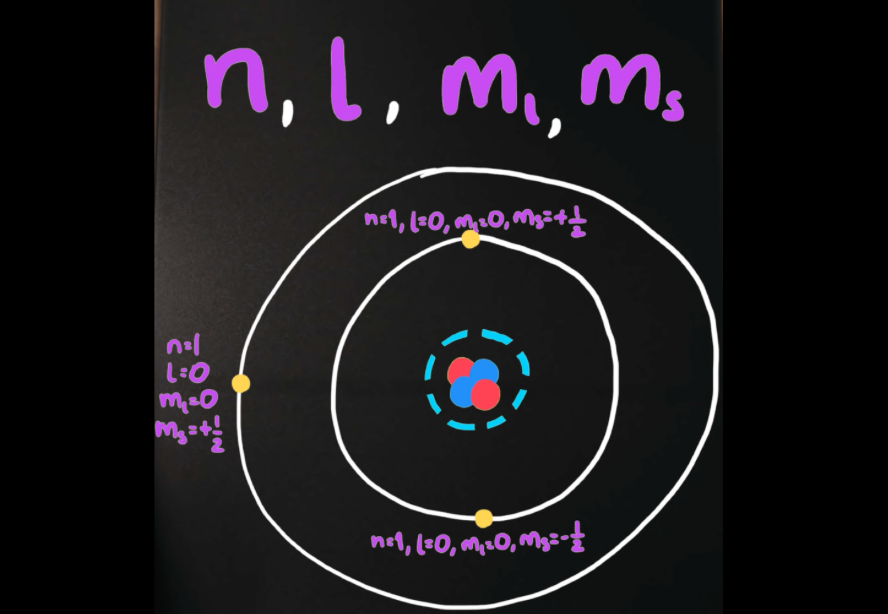 n, l, mₗ, mₛ
n=1, l=0, mₗ=0, mₛ=+½
n=1
l=0
mₗ=0
mₛ=+½
n=1, l=0, mₗ=0, mₛ=-½